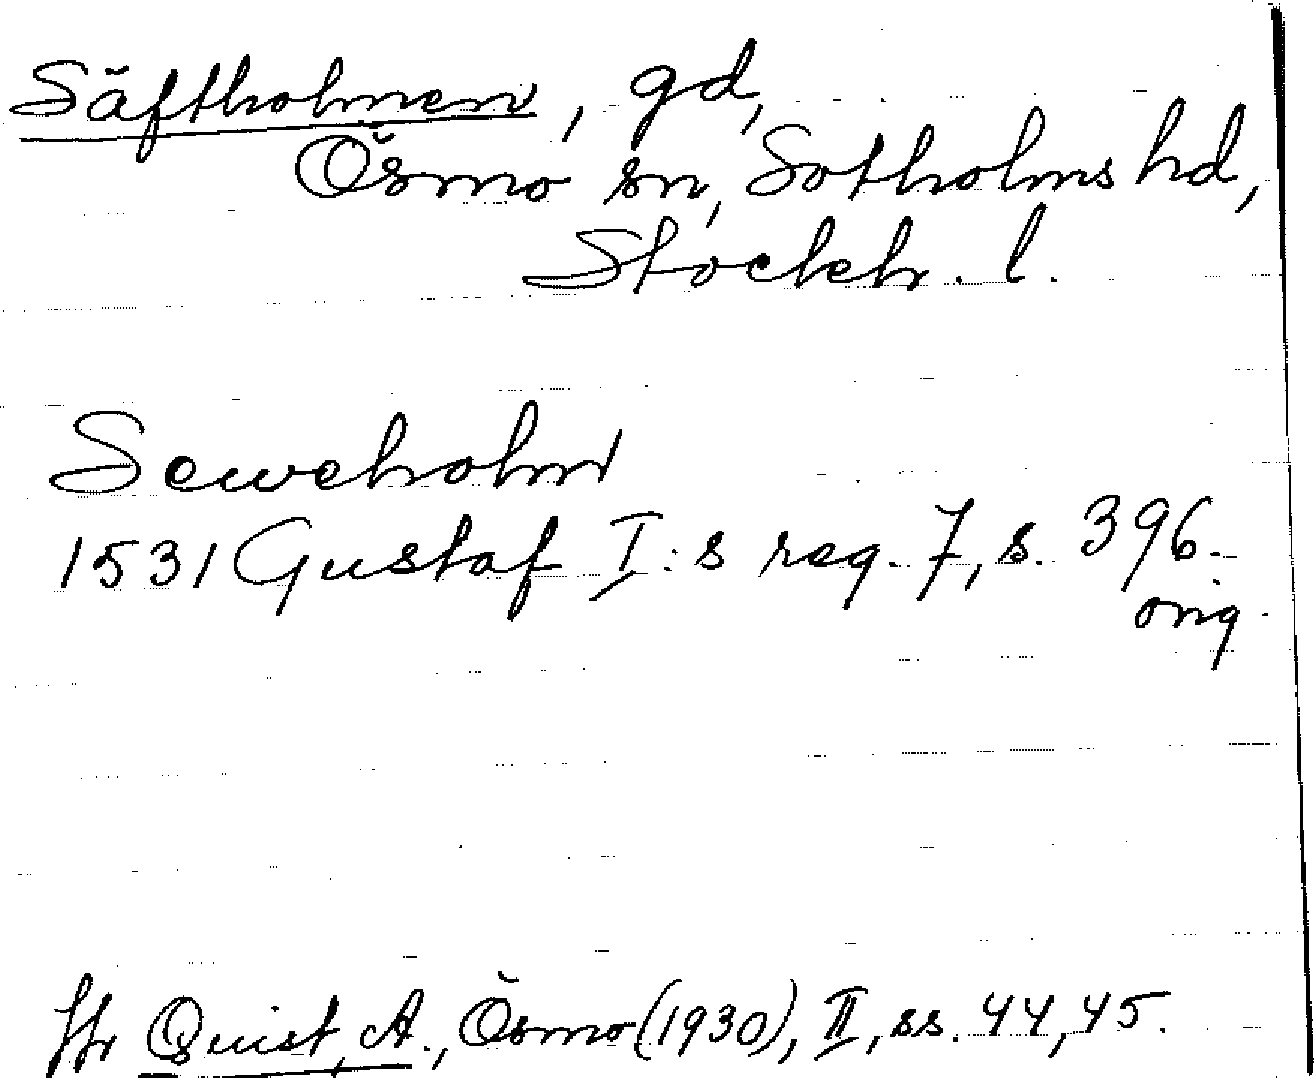 Säftholmen, gd,
Ösmo sn, Sotholms hd,
Stockh. l.
Seweholm
1531 Gustaf I:s reg. 7, s. 396.
orig.
Hr Quist, A., Ösmo (1930), II, ss. 44, 45.